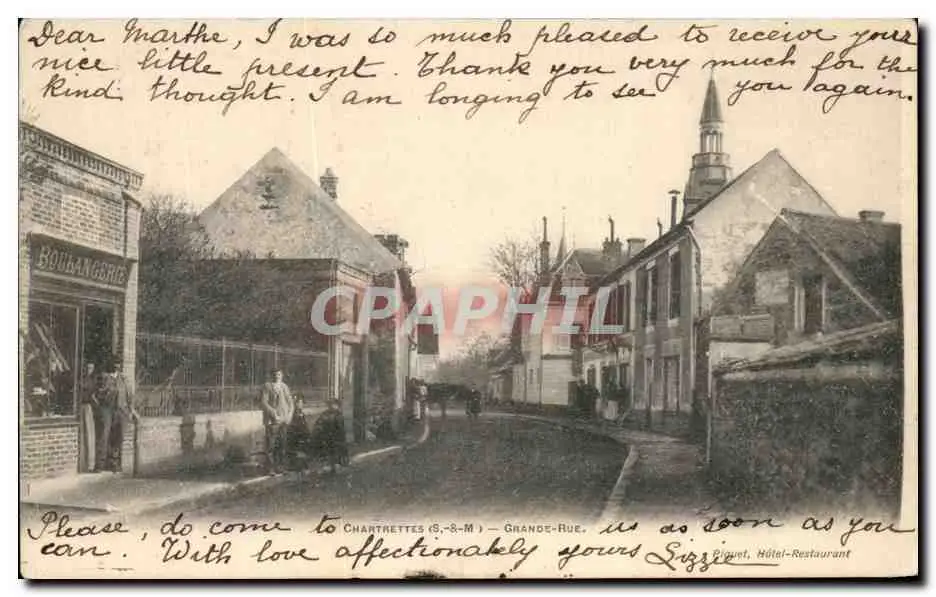 Dear Marthe, I was so much pleased to receive your
nice little present. Thank you very much for the
kind thought. I am longing to see you again.
BOULANGERIE
CAPHILA
Please do come to CHARTRETTES (S.-&-M) — GRANDE-RUE. us as soon as you
can. With love affectionately yours Lizzie Piquet, Hôtel-Restaurant